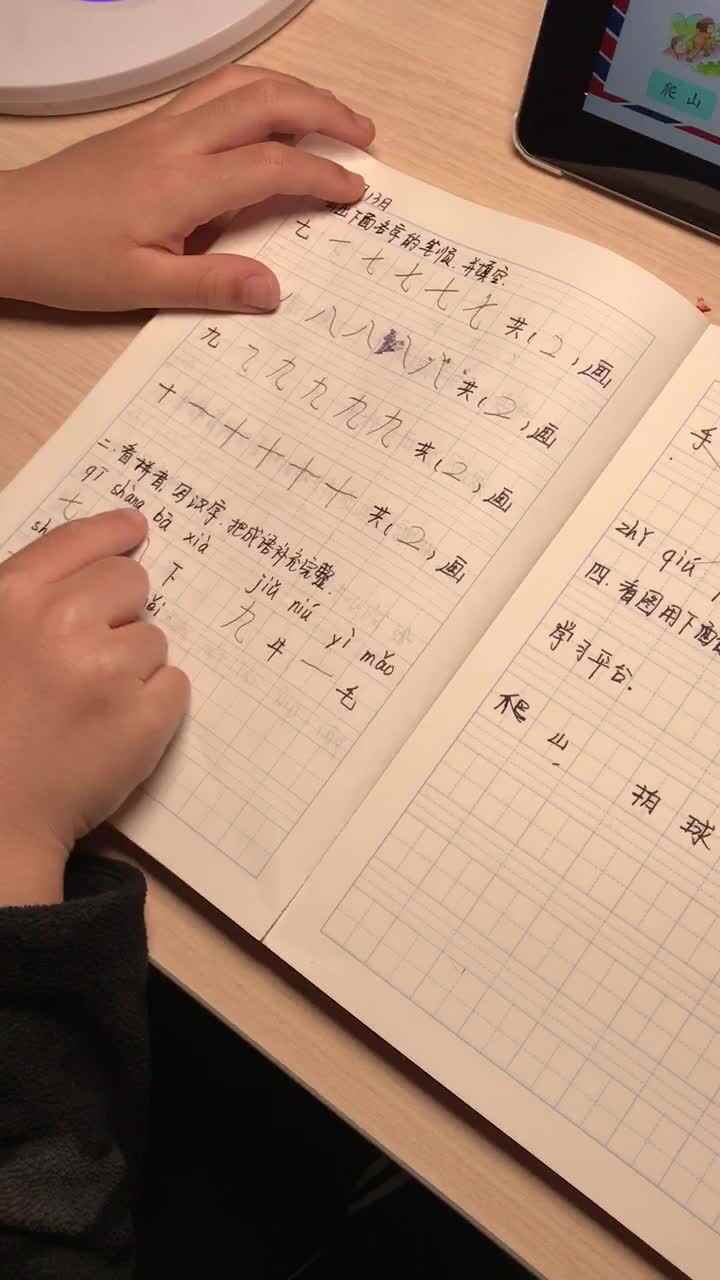 月13日
下面各字的笔顺,并填空.
七 一 七 七 七 七 七 共(2)画
八 八 八 八 共(2)画
九 乙 九 九 九 九 共(2)画
十 一 十 十 十 十 共(2)画
二.看拼音,写汉字,把成语补充完整.
qī shàng bā xià
七 下
jiǔ niú yì máo
九 牛 一 毛
手
zhǐ qiú
四.看图用下面
学习平台.
爬 山 拍 球
爬 山